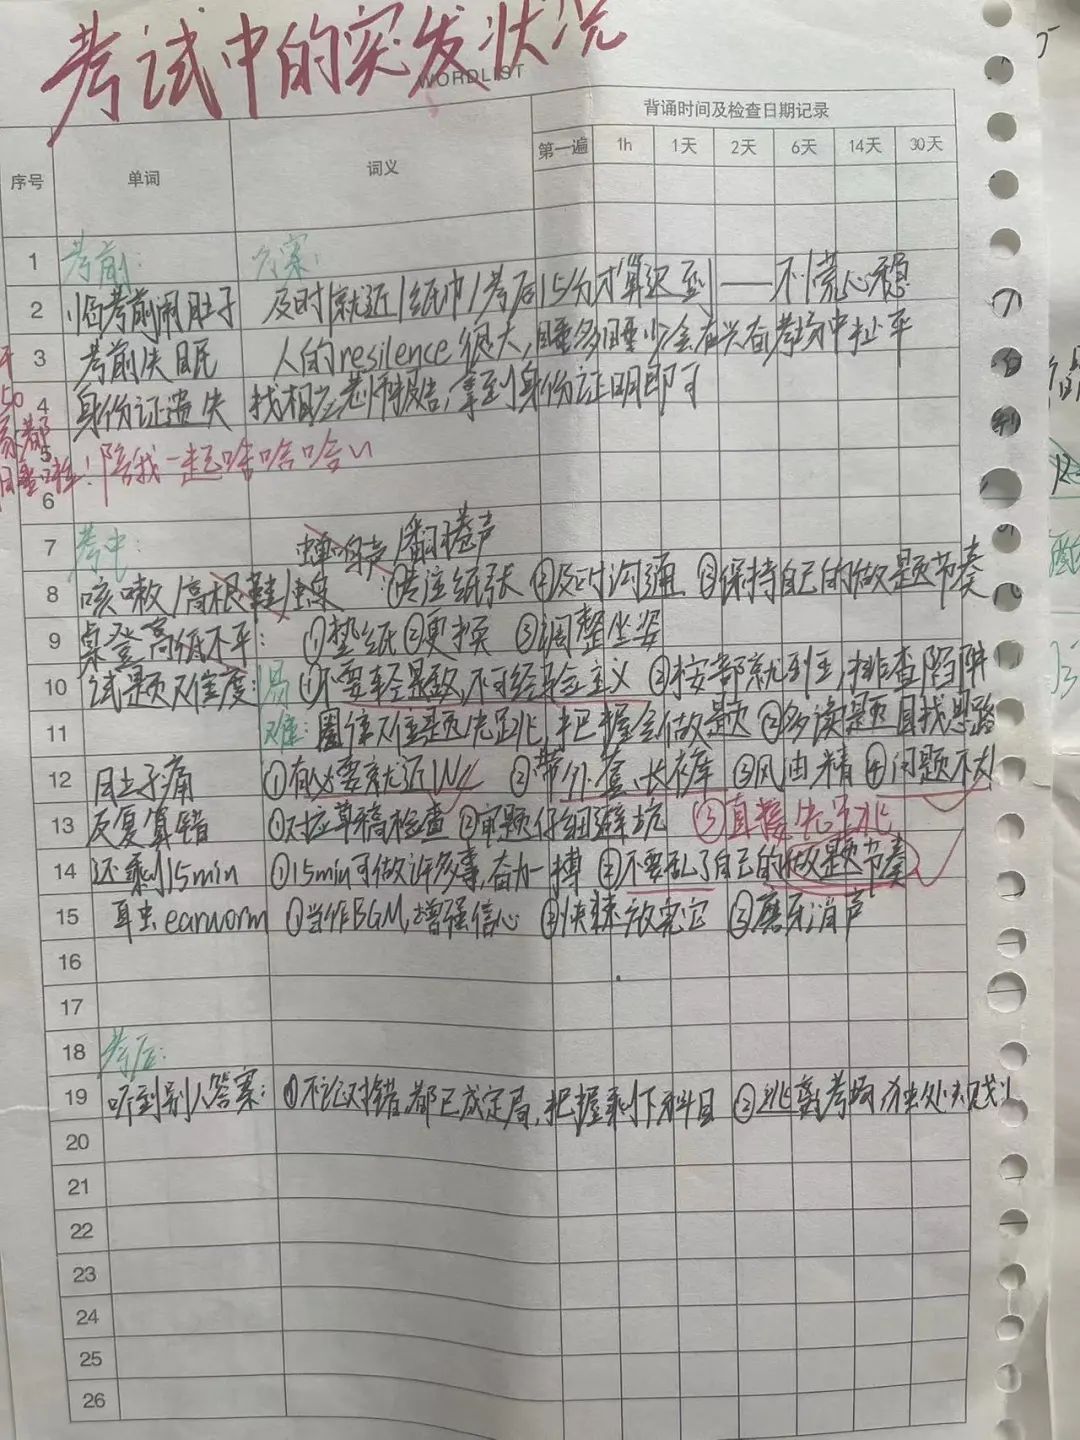 考试中的突发状况
WORDLIST
背诵时间及检查日期记录
序号 单词 词义 第一遍 1h 1天 2天 6天 14天 30天
1 考前: 方案:
2 临考前闹肚子 及时就近/纸巾/考后15分才算迟到——不慌心稳
3 考前失眠 人的resilence很大,睡多睡少会在兴奋考场中扯平
4 身份证遗失 找相应老师报告,拿到身份证明即可
5 陪我一起哈哈哈哈
6
7 考中: 蝉鸣声/翻卷声
8 咳嗽/高根鞋/ ①专注纸张 ②及时沟通 ③保持自己的做题节奏
9 桌登高低不平: ①垫纸 ②更换 ③调整坐姿
10 试题难度: 易 ①不要轻易题敌,不可经验主义 ②按部就列王,排查陷阱
11 难: 圈住难题先跳,把握会做题 ②多读题目找思路
12 肚子痛 ①有必要就近W ②带外套、长衣库 ③风油精 ④问题不大
13 反复算错 ①对应草稿检查 ②审题仔细避坑 ③直接先跳
14 还剩15min ①15min可做许多事,奋力一搏 ②不要乱了自己的做题节奏
15 耳虫earworm ①当作BGM,增强信心 ②快速放完它 ③磨牙消声
16
17
18 考后:
19 听到别人答案: ①不论对错都已成定局,把握剩下科目 ②逃离考场,独处规划
20
21
22
23
24
25
26